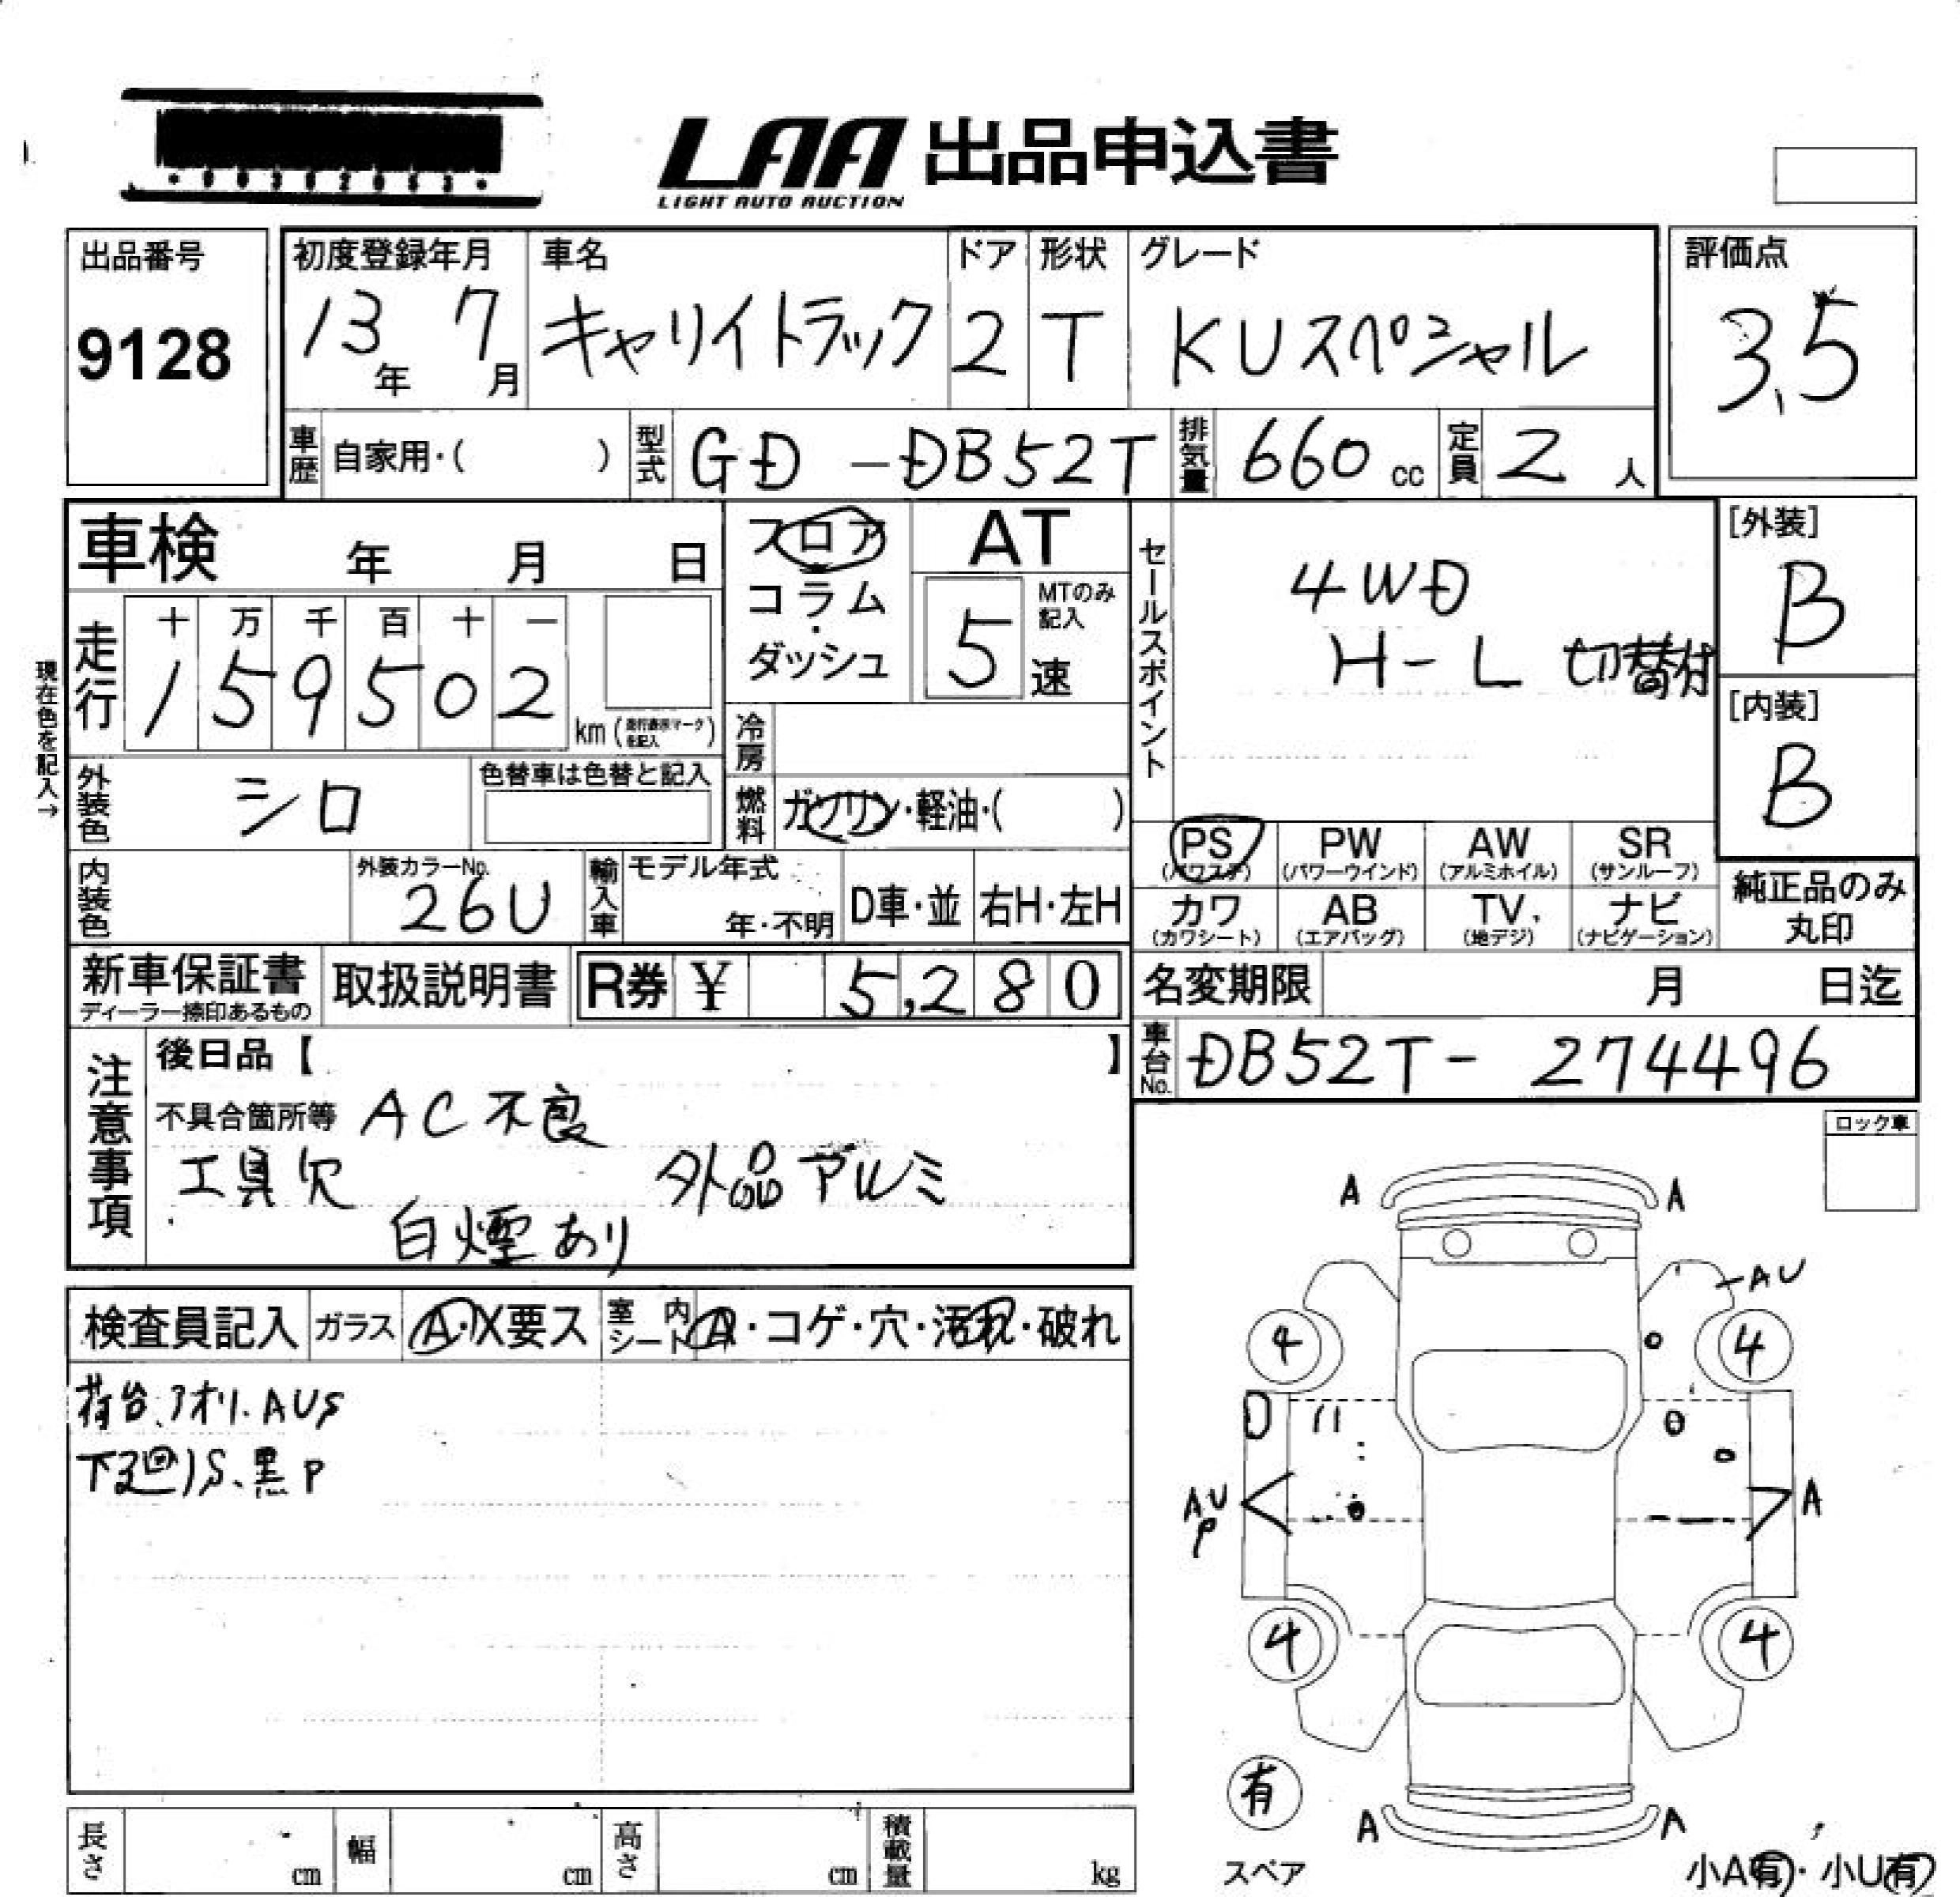 LAA 出品申込書
LIGHT AUTO AUCTION
出品番号
9128
初度登録年月
13年 7月
車名
キャリイトラック
ドア
2
形状
T
グレード
KUスペシャル
評価点
3.5
車歴 自家用・( )
型式 GD-DB52T
排気量 660 cc
定員 2 人
車検 年 月 日
フロア
コラム
・
ダッシュ
AT
MTのみ記入
5 速
セールスポイント
4WD
H-L 切替付
[外装]
B
[内装]
B
現在色を記入→
走行
十 万 千 百 十 一
1 5 9 5 0 2
km(走行表示マークを記入)
冷房
外装色 シロ
色替車は色替と記入
燃料 ガソリン・軽油・( )
PS (パワステ)
PW (パワーウインド)
AW (アルミホイル)
SR (サンルーフ)
カワ (カワシート)
AB (エアバッグ)
TV (地デジ)
ナビ (ナビゲーション)
純正品のみ
丸印
内装色
外装カラーNo.
26U
輸入車
モデル年式
年・不明
D車・並
右H・左H
新車保証書
ディーラー捺印あるもの
取扱説明書
R券 ¥ 5,280
名変期限 月 日迄
車台No. DB52T-274496
注意事項
後日品【 】
不具合箇所等 AC不良
工具欠 外品アルミ
白煙あり
ロック車
検査員記入
ガラス A・X要ス
室内シート ・コゲ・穴・汚れ・破れ
荷台、アオリ、AUS
下廻りS、黒P
A A
AU
4 4
AU
P
A
4 4
有
スペア
A A
小A有・小U有
長さ cm
幅 cm
高さ cm
積載量 kg